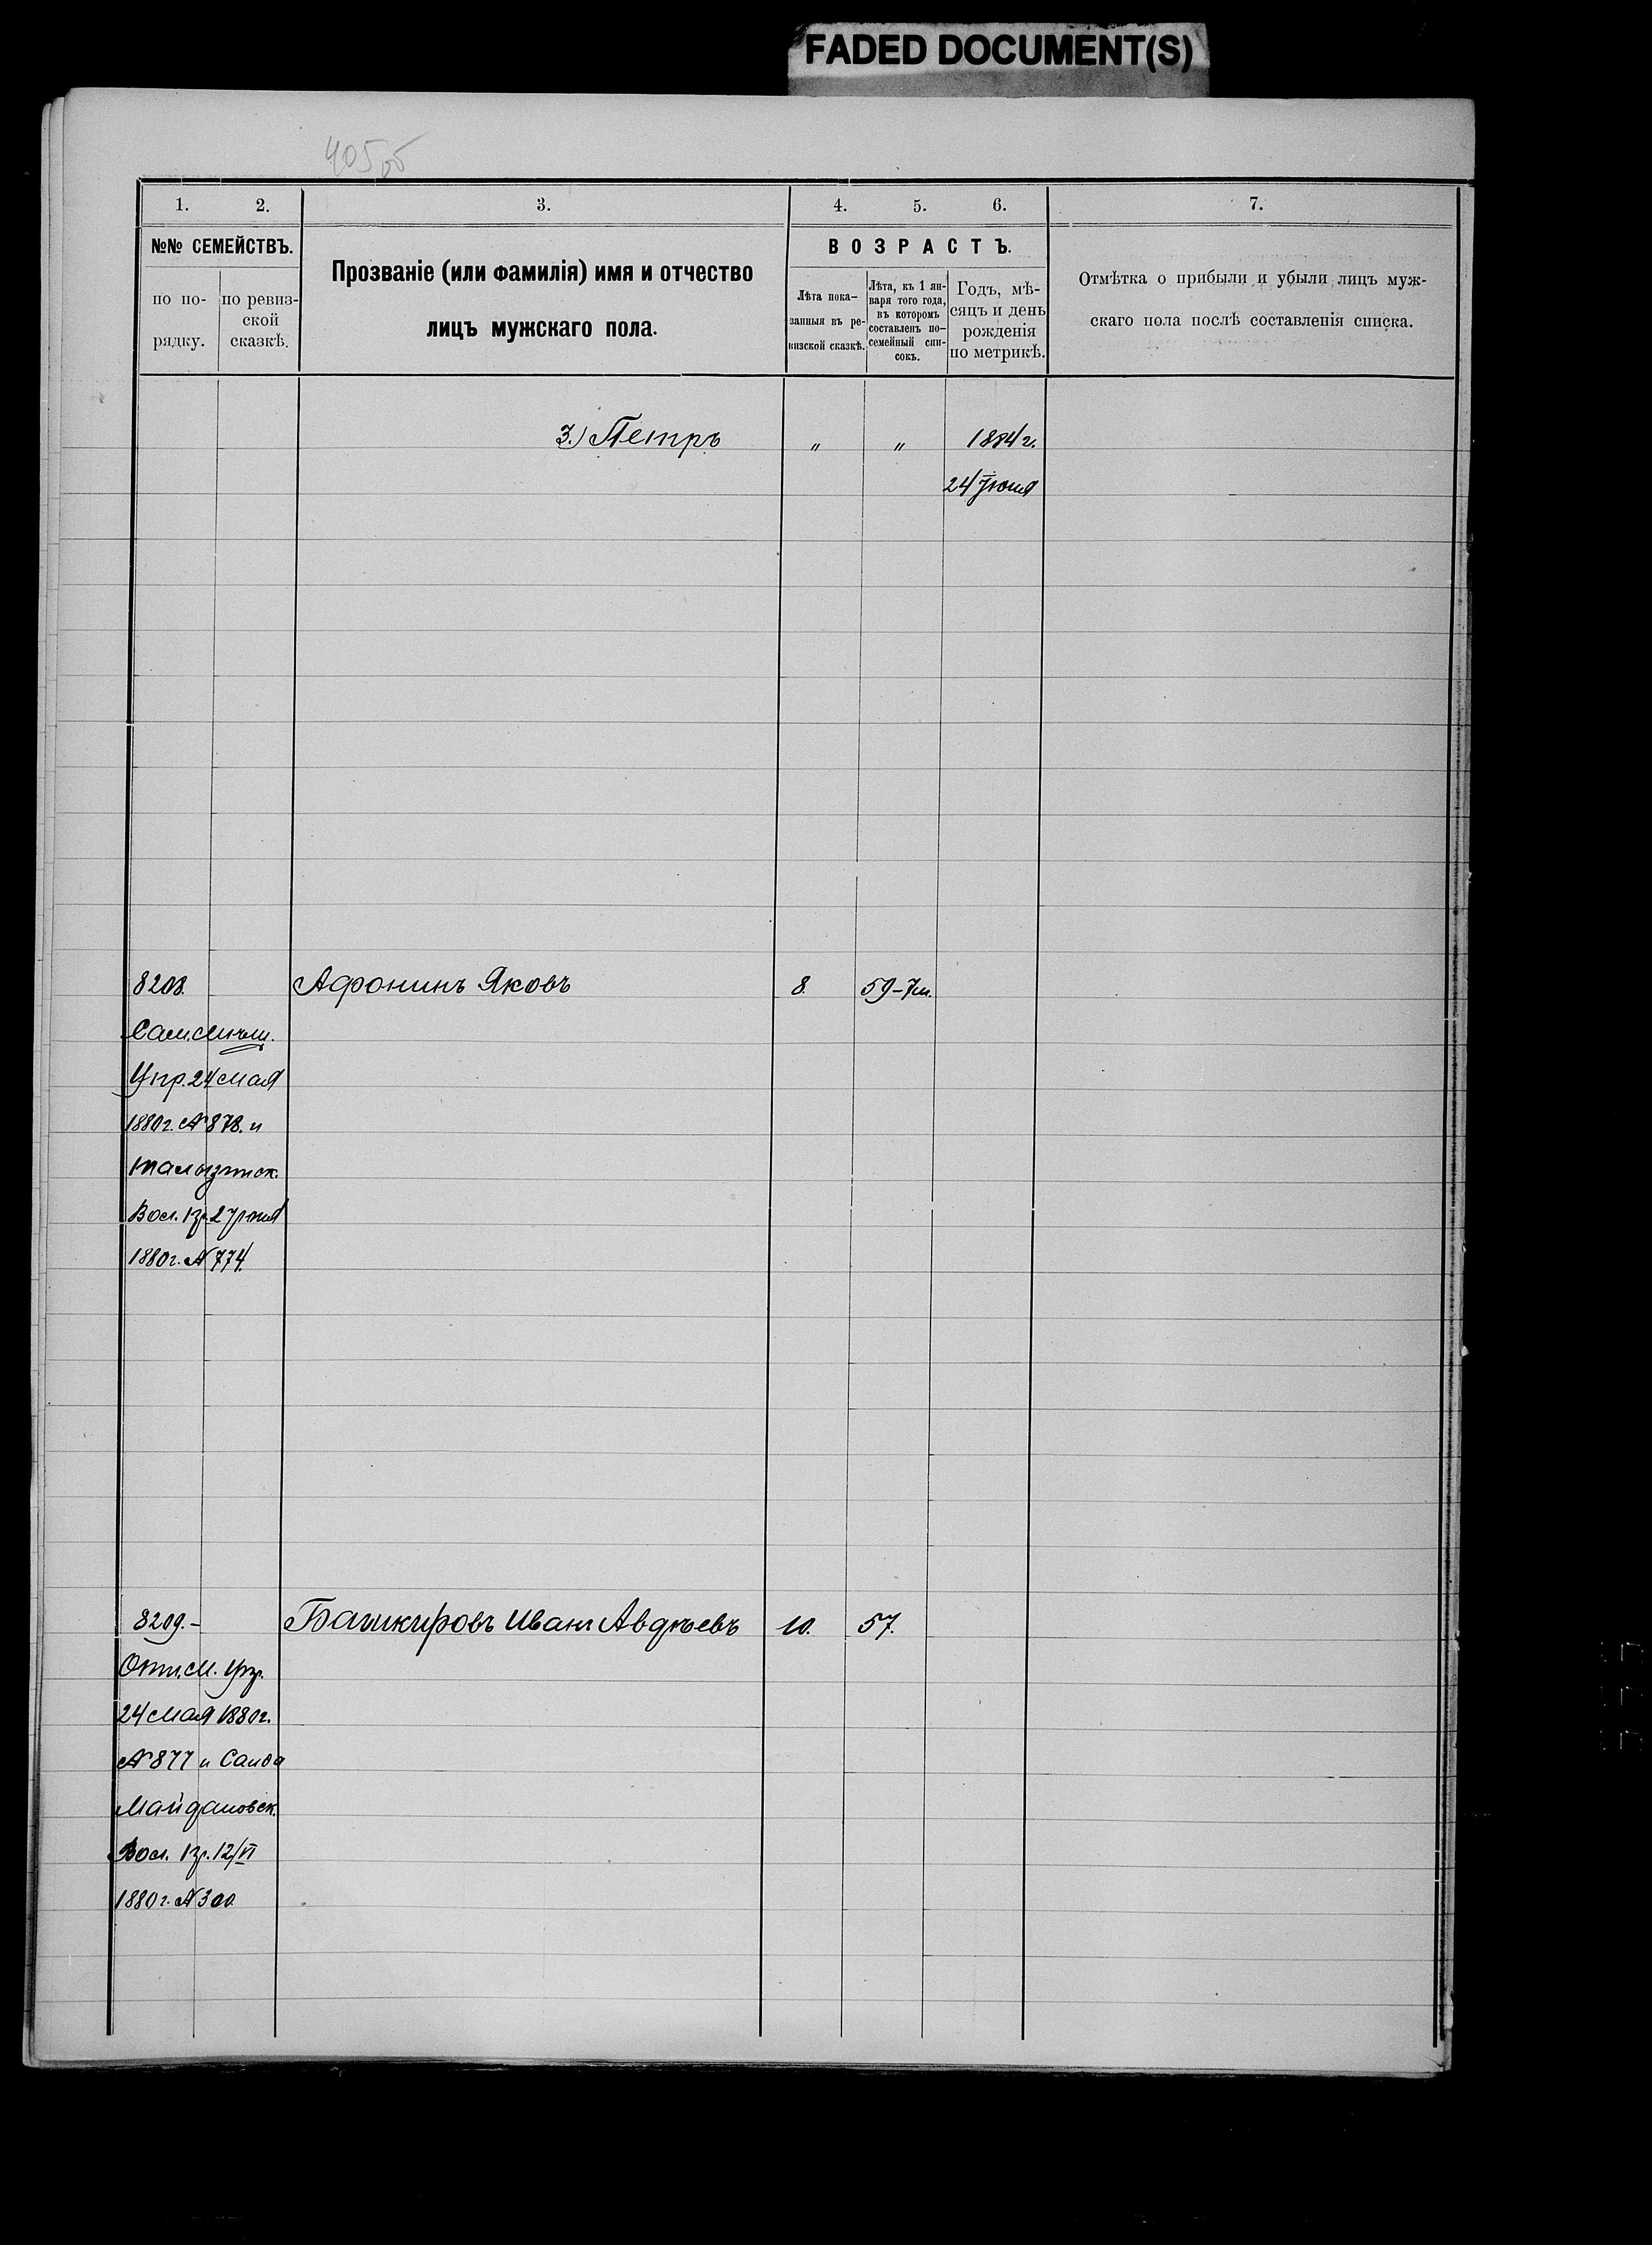 FADED DOCUMENT(S)
405 об
1. 2. 3. 4. 5. 6. 7.
№№ СЕМЕЙСТВЪ.
по по-
рядку.
по ревиз-
ской
сказкѣ.
Прозваніе (или фамилія) имя и отчество
лицъ мужскаго пола.
ВОЗРАСТЪ.
Лѣта пока-
занныя въ ре-
визской сказкѣ.
Лѣта, къ 1 ян-
варя того года,
въ которомъ
составленъ по-
семейный спи-
сокъ.
Годъ, мѣ-
сяцъ и день
рожденія
по метрикѣ.
Отмѣтка о прибыли и убыли лицъ муж-
скаго пола послѣ составленія списка.
3.) Петръ " " 1884 г.
24 Іюня
8208. Афонинъ Яковъ 8. 59
Упр. 24 Мая
1880 г. № 878. и
Вол. пр. 27
1880 г. № 774.
8209.- Башкировъ Иванъ Авдѣевъ 10. 57.
М. Упр.
24 Мая 1880 г.
№ 877 и
Майдановск.
Вол. пр. 12/VI
1880 г. № 300